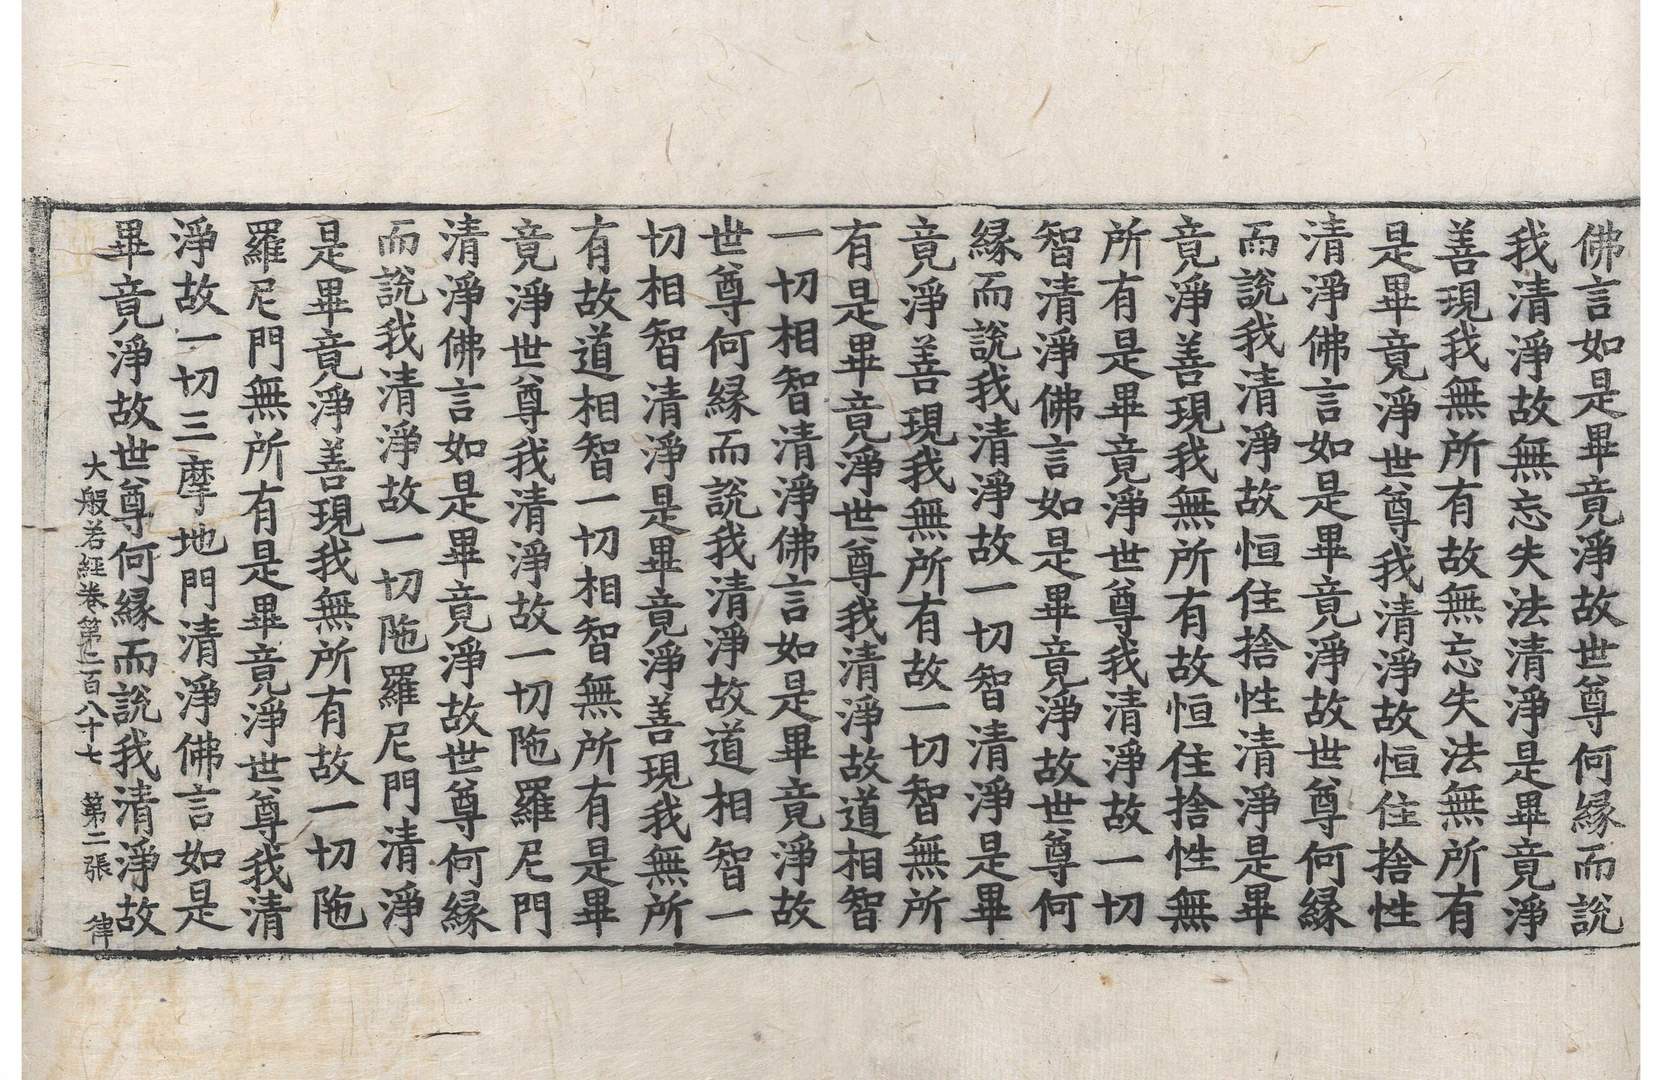 佛言如是畢竟淨故世尊何縁而說
我清淨故無忘失法清淨是畢竟淨
善現我無所有故無忘失法無所有
是畢竟淨世尊我清淨故恒住捨性
清淨佛言如是畢竟淨故世尊何縁
而說我清淨故恒住捨性清淨是畢
竟淨善現我無所有故恒住捨性無
所有是畢竟淨世尊我清淨故一切
智清淨佛言如是畢竟淨故世尊何
縁而說我清淨故一切智清淨是畢
竟淨善現我無所有故一切智無所
有是畢竟淨世尊我清淨故道相智
一切相智清淨佛言如是畢竟淨故
世尊何縁而說我清淨故道相智一
切相智清淨是畢竟淨善現我無所
有故道相智一切相智無所有是畢
竟淨世尊我清淨故一切陁羅尼門
清淨佛言如是畢竟淨故世尊何縁
而說我清淨故一切陁羅尼門清淨
是畢竟淨善現我無所有故一切陁
羅尼門無所有是畢竟淨世尊我清
淨故一切三摩地門清淨佛言如是
畢竟淨故世尊何縁而說我清淨故
大般若經卷第二百八十七 第二張 律